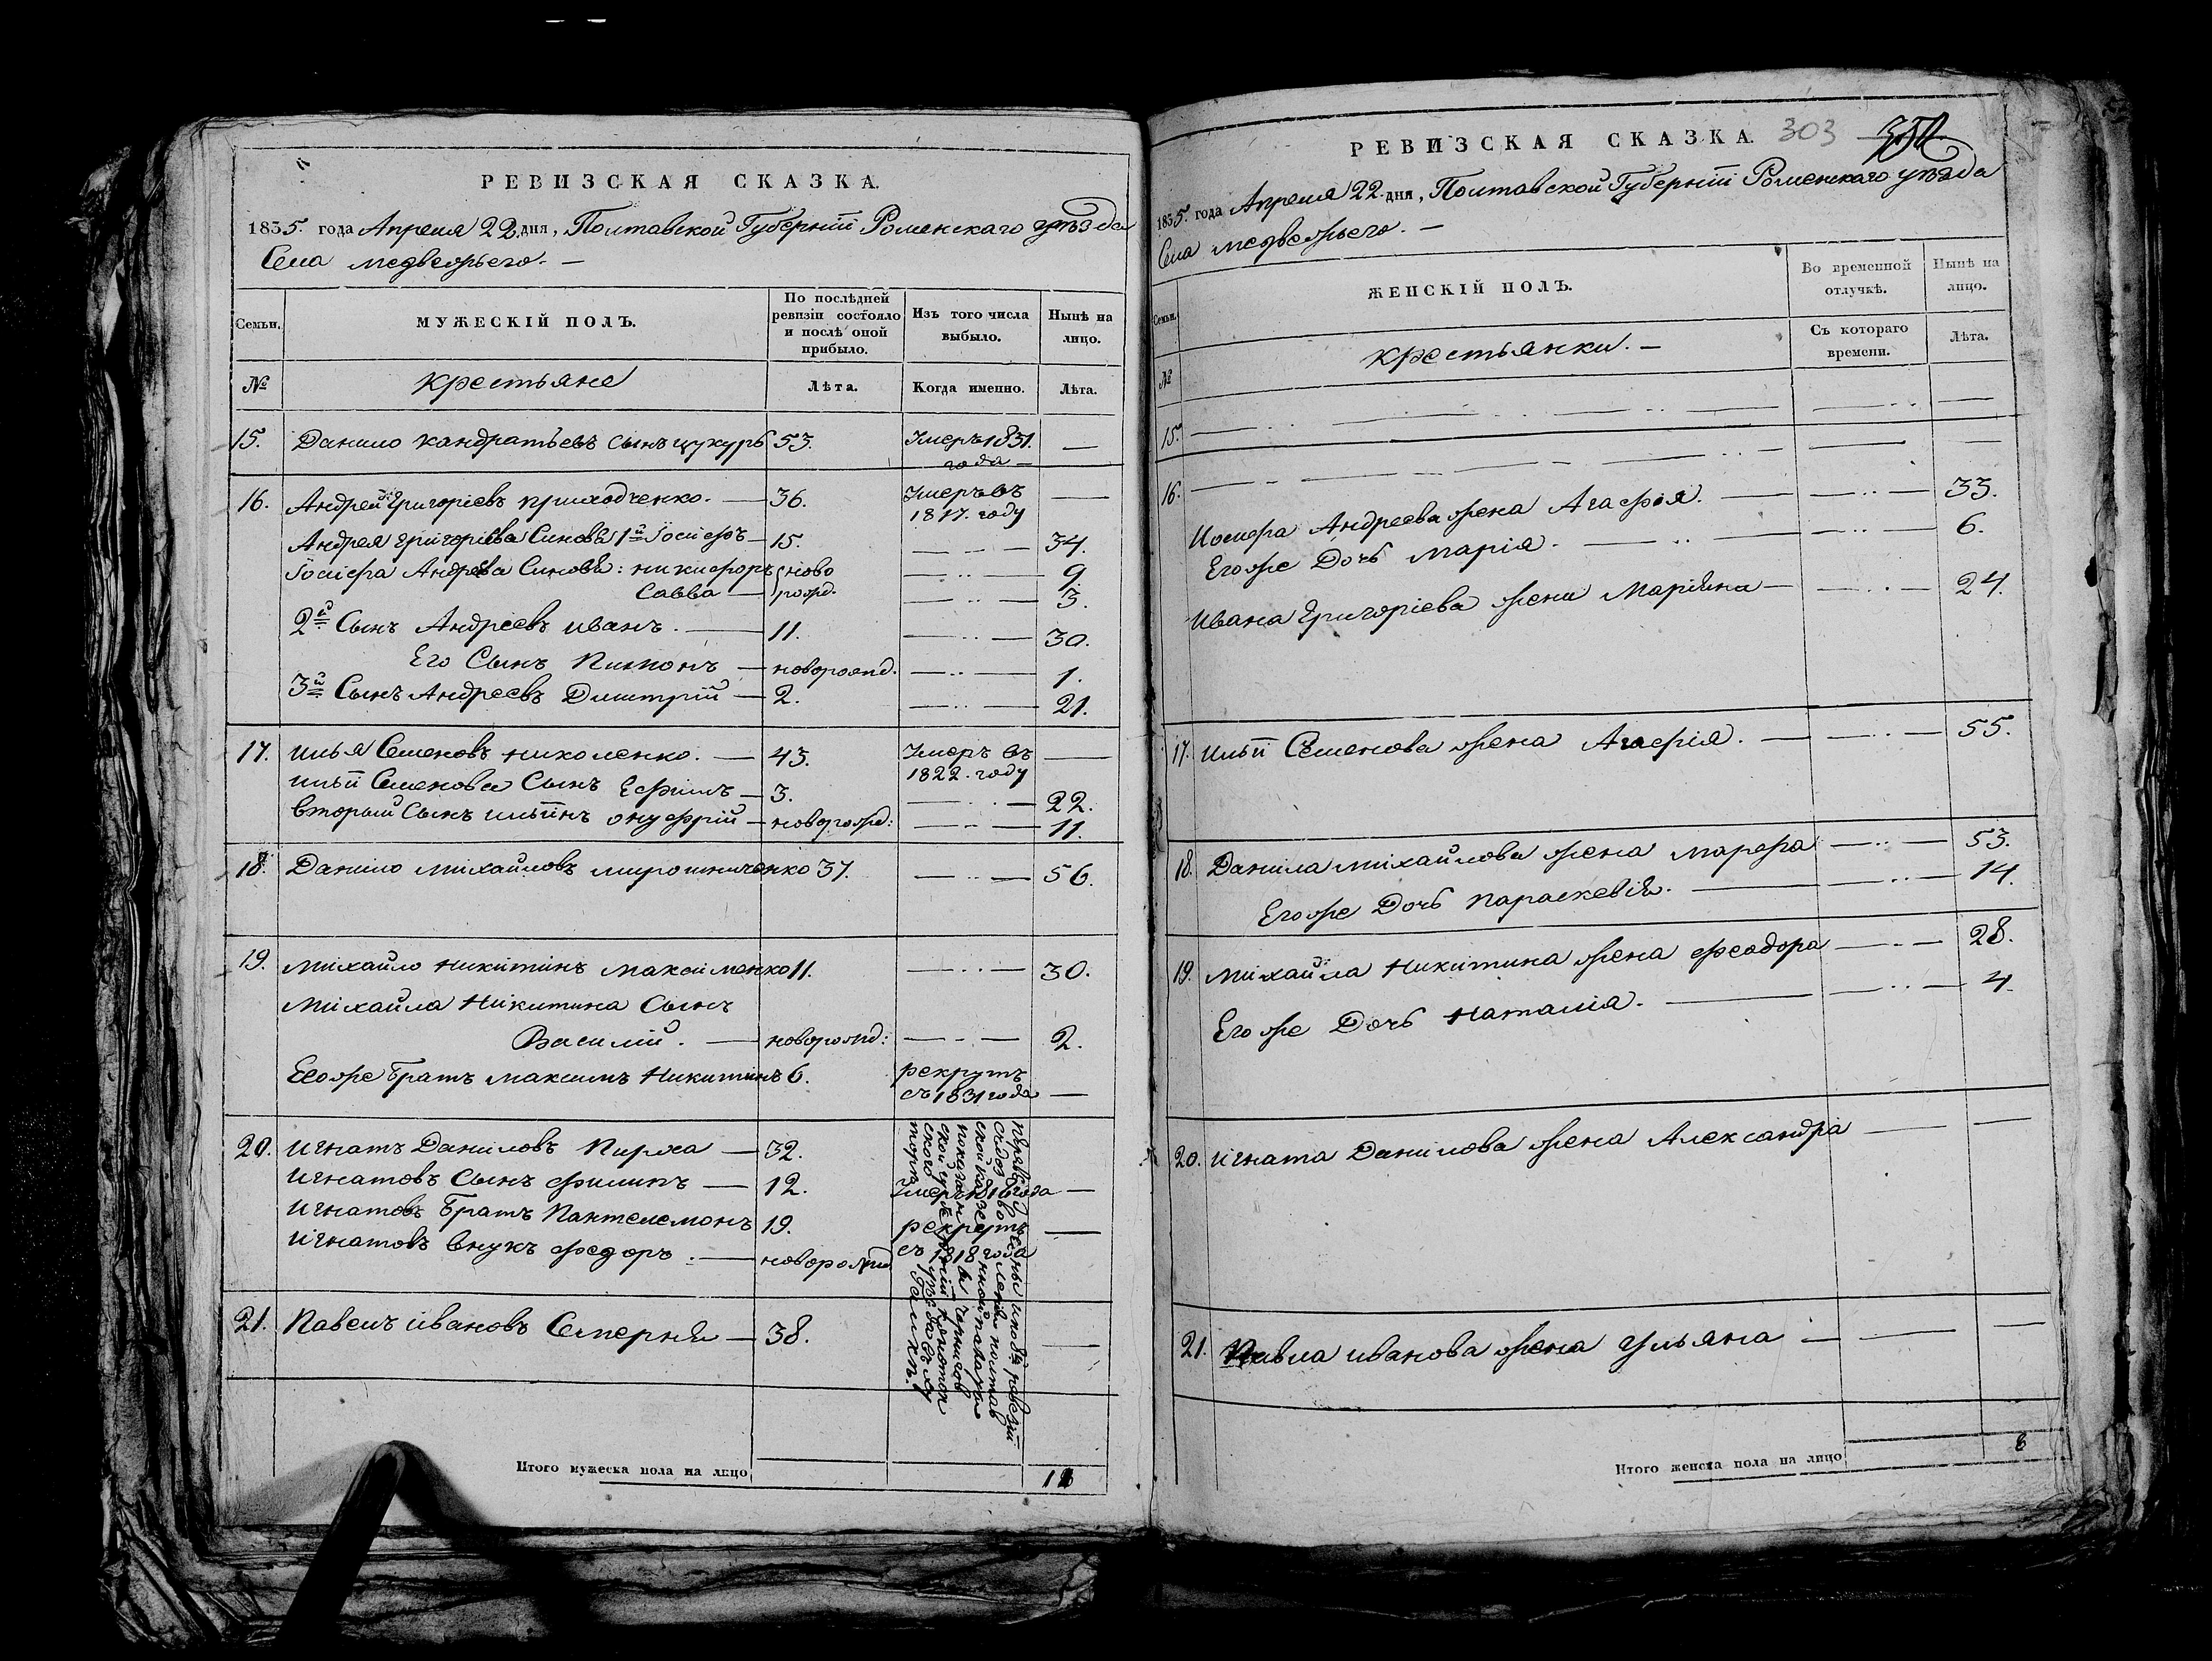 РЕВИЗСКАЯ СКАЗКА.
1835. года Апреля 22 дня, Полтавской Губерніи Роменскаго уѣзда
Села Медвежьего. —
Семьи. МУЖЕСКІЙ ПОЛЪ. По послѣдней ревизіи состояло и послѣ оной прибыло. Изъ того числа выбыло. Нынѣ на лицо.
№ Крестьяне Лѣта. Когда именно. Лѣта.
15. Данило Кандратьевъ сынъ Цукуръ 53. Умеръ 1831. года — —
16. Андрей Григоріевъ Приходченко. — 36. Умеръ въ 1817. году —
Андрея Григоріева Синовя 1й Іосифъ — 15. — 34.
Іосифа Андрѣева Синовя: Никифоръ ново 9.
Савва — рожд. 3.
2й Сынъ Андреевъ Иванъ. — 11. — 30.
Его Сынъ Пимонъ — новорожд. — 1.
3й Сынъ Андреевъ Дмитрій — 2. — 21.
17. Илья Семеновъ Николенко. — 43. Умеръ въ 1822. году —
Ильи Семенова Сынъ Ефимъ — 3. — 22.
Вторый Сынъ Ильинъ Онуфрій — новорожд: — 11.
18. Данило Михайловъ Мирошниченко 37. — 56.
19. Михайло Никитинъ Максименко 11. — 30.
Михайла Никитина Сынъ
Василій. — новорожд: — 2.
Егоже Братъ Максимъ Никитинъ 6. рекрутъ съ 1831 года —
20. Игнатъ Даниловъ Пирха — 32.
Игнатовъ Сынъ Филипъ — 12. Умеръ 1816 года —
Игнатовъ Братъ Пантелемонъ 19. рекрутъ съ 1818 года —
Игнатовъ Внукъ Федоръ — новорожд.
21. Павелъ Ивановъ Семерня — 38. —
Итого мужеска пола на лицо
РЕВИЗСКАЯ СКАЗКА. 303
1835. года Апреля 22 дня, Полтавской Губерніи Роменскаго уѣзда
Села Медвежьего. —
Семьи. ЖЕНСКІЙ ПОЛЪ. Во временной отлучкѣ. Нынѣ на лицо.
№ Крестьянки. — Съ котораго времени. Лѣта.
15. —
16. —
Иосифа Андреева жена Агафія. — 33.
Егоже Дочь Марія. — 6.
Ивана Григоріева жена Марійна — 24.
17. Ильи Семенова жена Агафія. — 55.
18. Данила Михайлова жена Марфа — 53.
Егоже Дочь Параскевія. — 14.
19. Михайла Никитина жена Феодора — 28.
Егоже Дочь Наталія. — 4.
20. Игната Данилова жена Александра — —
21. Павла Иванова жена Ульяна — —
Итого женска пола на лицо 8